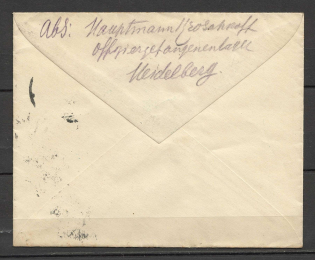 Abs: Hauptmann
Offiziersgefangenenlager
Heidelberg.